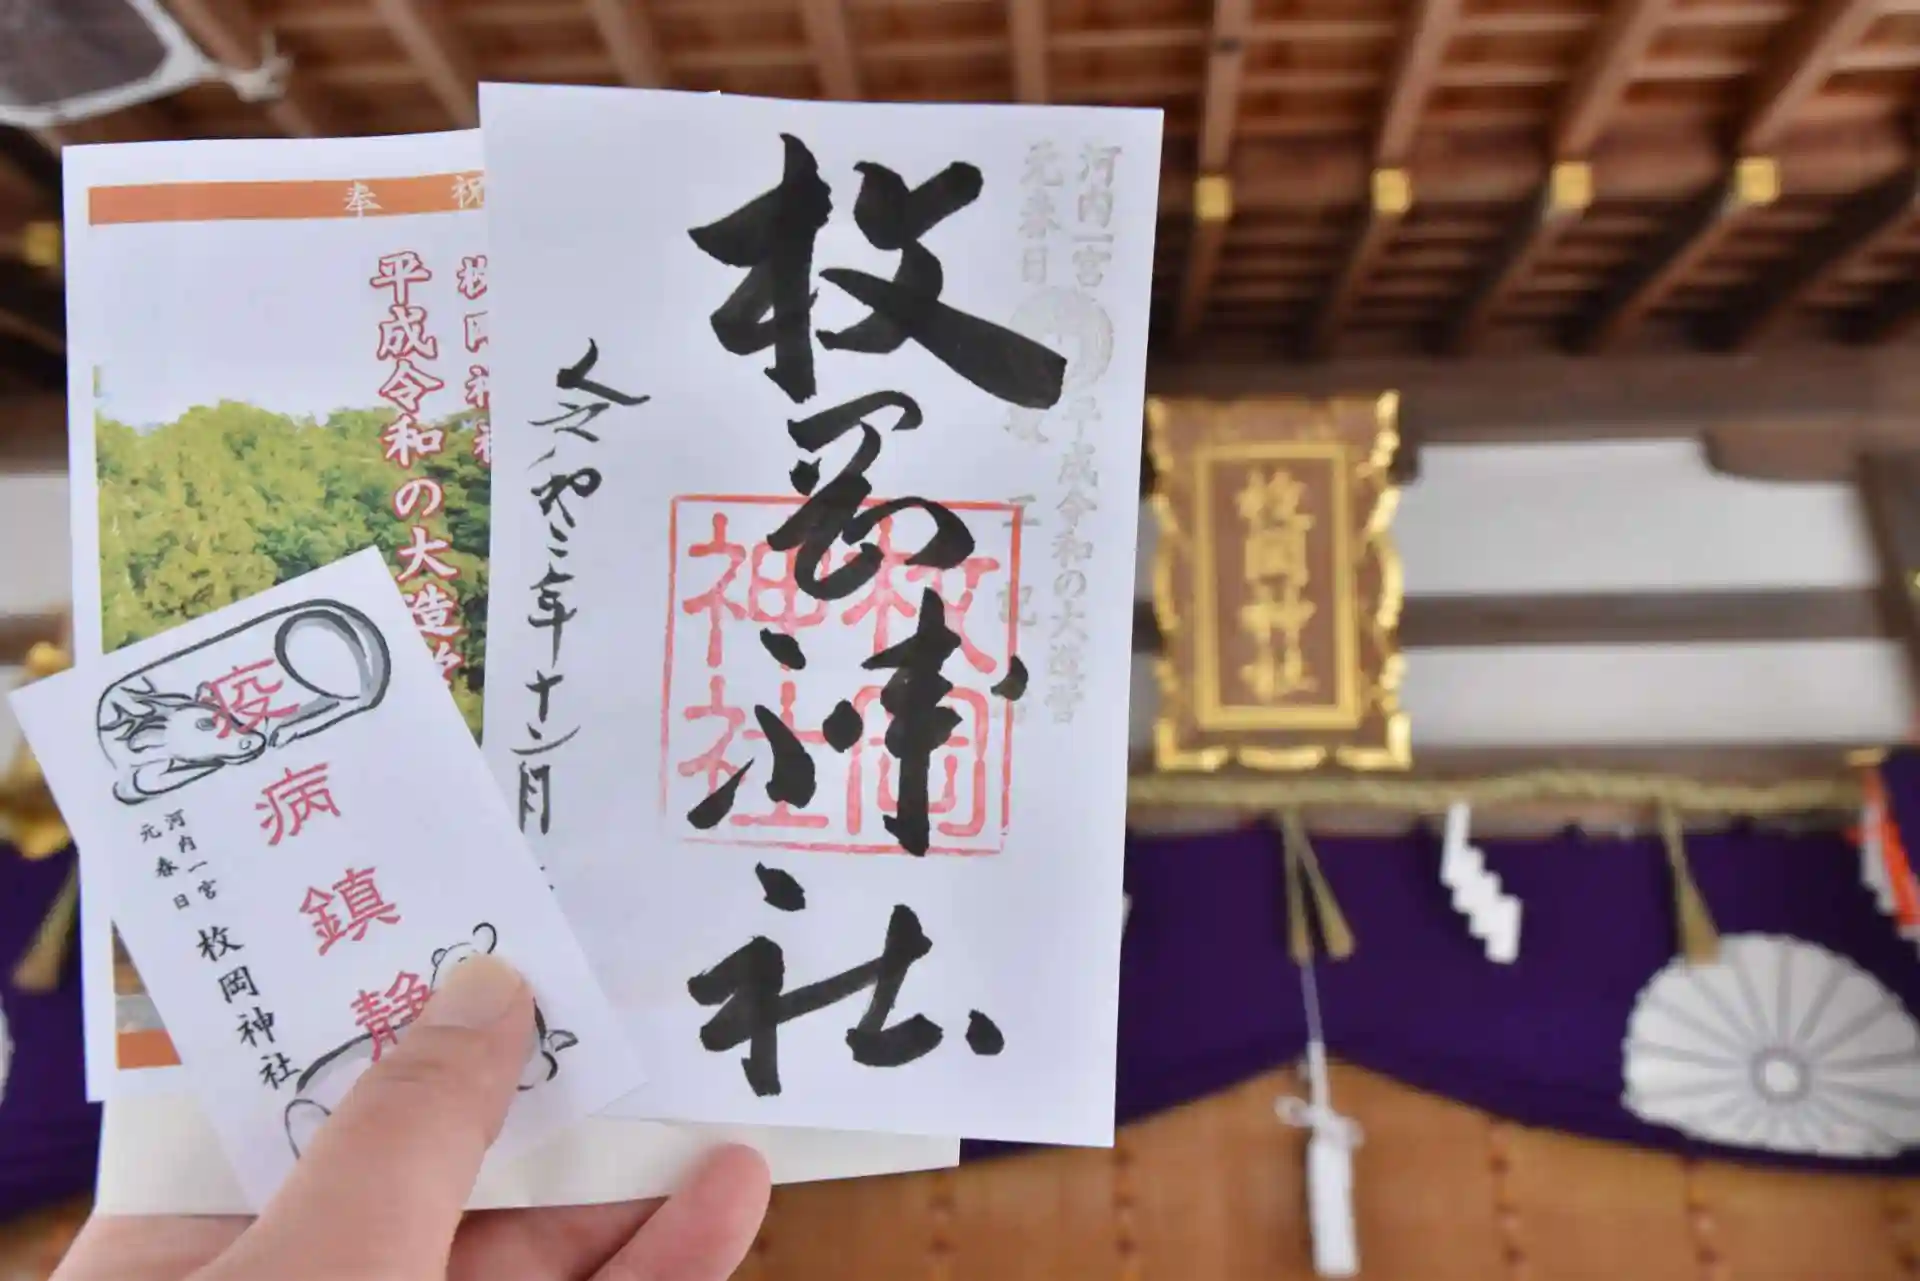 河内一宮
元春日
平成令和の大造営
枚岡神社
枚岡
神社
令和二年十二月
奉 祝
平成令和の大造
疫病鎮静
河内一宮
元春日
枚岡神社
枚岡神社